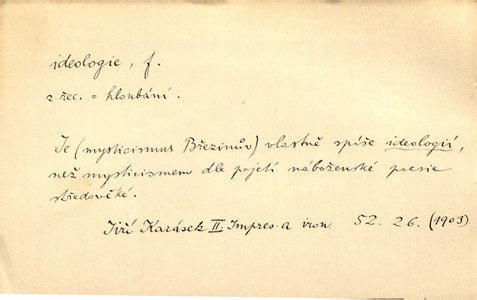 ideologie, f.
z řec. = hloubání.
Je (mysticismus Březinův) vlastně spíše ideologií,
než mysticismem dle pojetí náboženské poesie
středověké.
Jiří Karásek II. Impres. a iron. 52. 26. (1903)